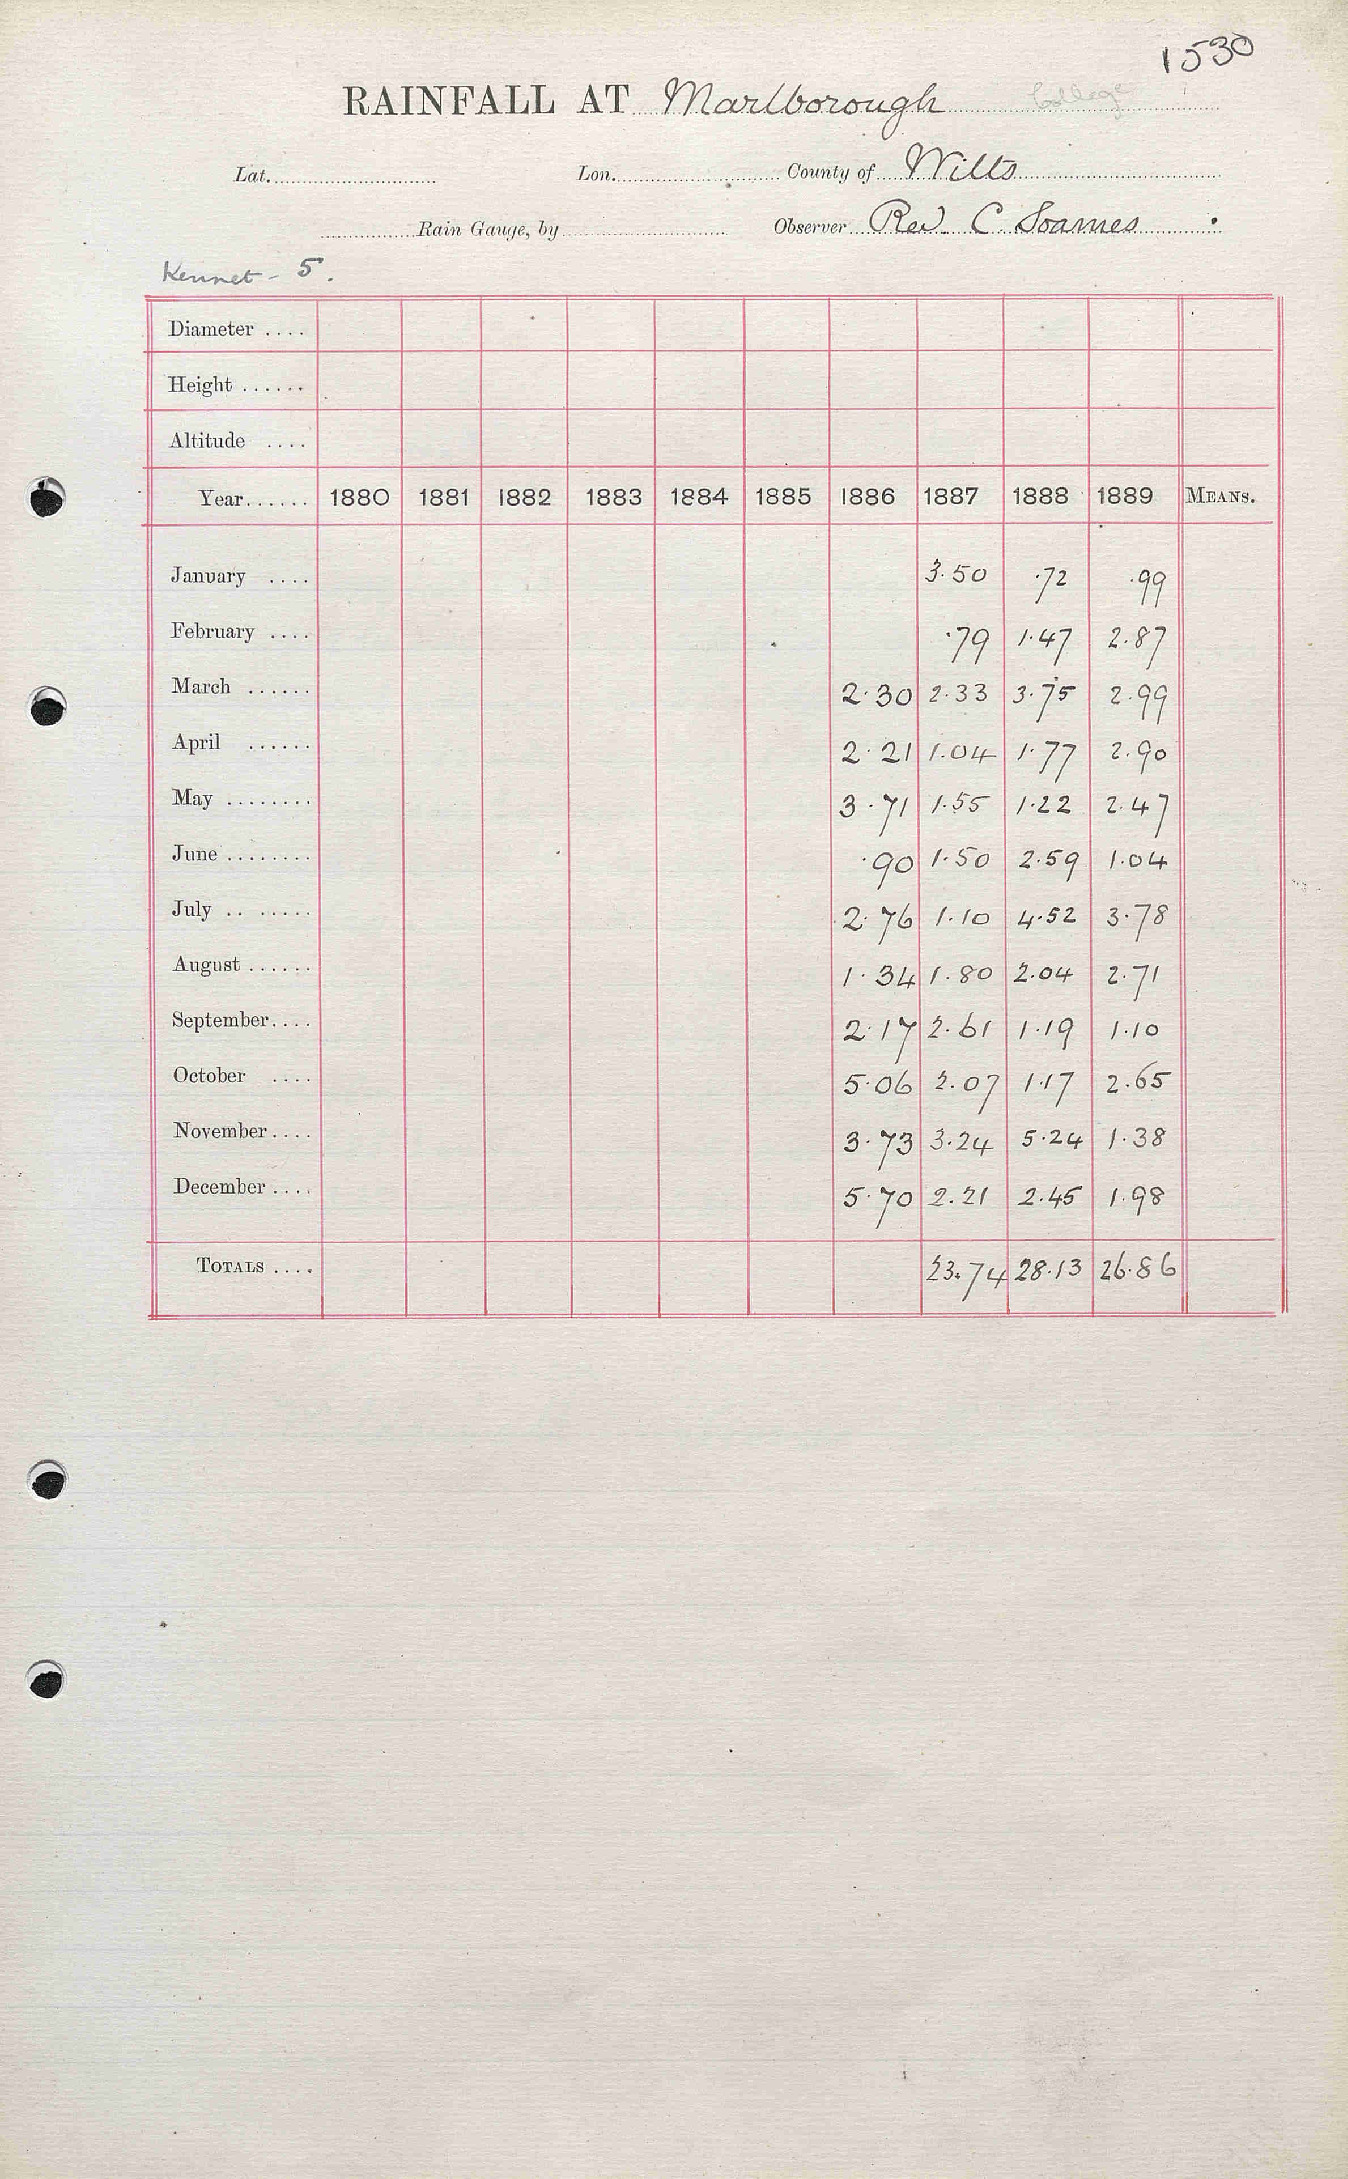 1530
RAINFALL AT Marlborough College
Lat. Lon. County of Wilts
Rain Gauge, by Observer Rev. C Soames
Kennet - 5.
Diameter ....
Height ......
Altitude ....
Year...... 1880 1881 1882 1883 1884 1885 1886 1887 1888 1889 MEANS.
January .... 3.50 .72 .99
February .... .79 1.47 2.87
March ...... 2.30 2.33 3.75 2.99
April ...... 2.21 1.04 1.77 2.90
May ........ 3.71 1.55 1.22 2.47
June ........ .90 1.50 2.59 1.04
July .. ..... 2.76 1.10 4.52 3.78
August ...... 1.34 1.80 2.04 2.71
September.... 2.17 2.61 1.19 1.10
October .... 5.06 2.07 1.17 2.65
November.... 3.73 3.24 5.24 1.38
December.... 5.70 2.21 2.45 1.98
TOTALS .... 23.74 28.13 26.86